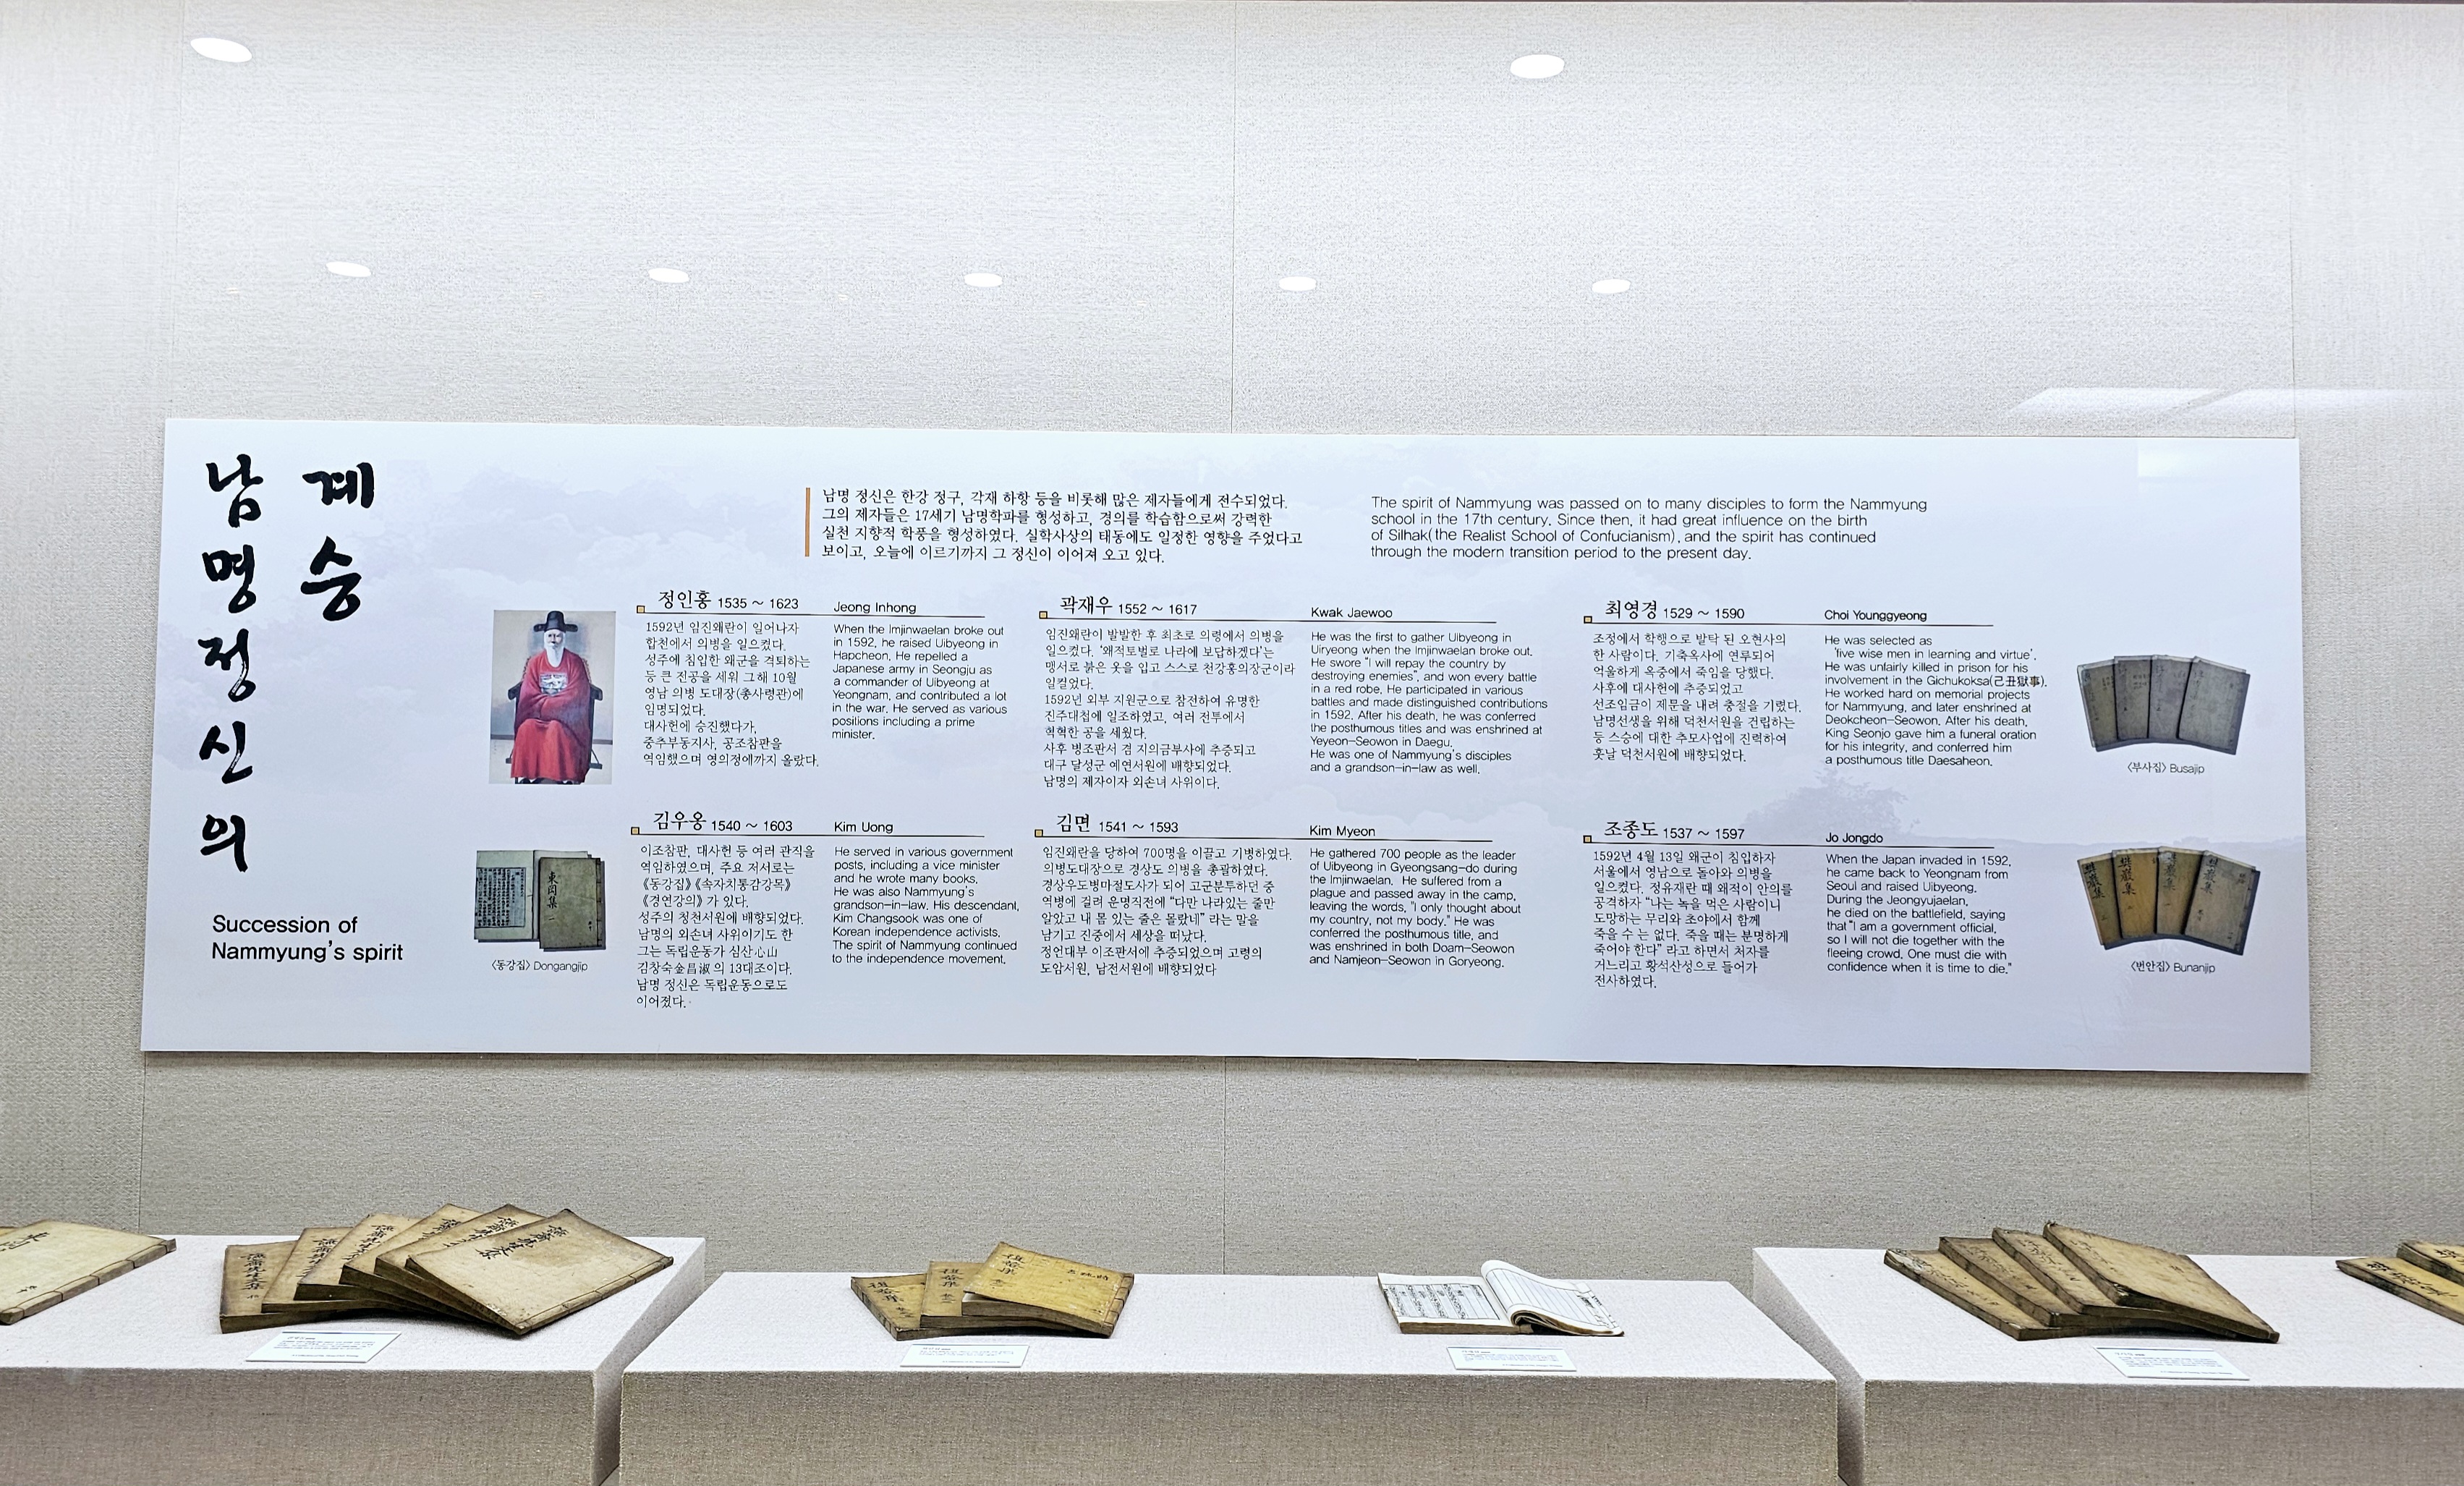 남명정신의
계승
Succession of
Nammyung's spirit
남명 정신은 한강 정구, 각재 하항 등을 비롯해 많은 제자들에게 전수되었다.
그의 제자들은 17세기 남명학파를 형성하고, 경의를 학습함으로써 강력한
실천 지향적 학풍을 형성하였다. 실학사상의 태동에도 일정한 영향을 주었다고
보이고, 오늘에 이르기까지 그 정신이 이어져 오고 있다.
The spirit of Nammyung was passed on to many disciples to form the Nammyung
school in the 17th century. Since then, it had great influence on the birth
of Silhak(the Realist School of Confucianism), and the spirit has continued
through the modern transition period to the present day.
정인홍 1535 ~ 1623
Jeong Inhong
1592년 임진왜란이 일어나자
합천에서 의병을 일으켰다.
성주에 침입한 왜군을 격퇴하는
등 큰 전공을 세워 그해 10월
영남 의병 도대장(총사령관)에
임명되었다.
대사헌에 승진했다가,
중추부동지사, 공조참판을
역임했으며 영의정에까지 올랐다.
When the Imjinwaelan broke out
in 1592, he raised Uibyeong in
Hapcheon. He repelled a
Japanese army in Seongju as
a commander of Uibyeong at
Yeongnam, and contributed a lot
in the war. He served as various
positions including a prime
minister.
곽재우 1552 ~ 1617
Kwak Jaewoo
임진왜란이 발발한 후 최초로 의령에서 의병을
일으켰다. '왜적토벌로 나라에 보답하겠다'는
맹서로 붉은 옷을 입고 스스로 천강홍의장군이라
일컬었다.
1592년 외부 지원군으로 참전하여 유명한
진주대첩에 일조하였고, 여러 전투에서
혁혁한 공을 세웠다.
사후 병조판서 겸 지의금부사에 추증되고
대구 달성군 예연서원에 배향되었다.
남명의 제자이자 외손녀 사위이다.
He was the first to gather Uibyeong in
Uiryeong when the Imjinwaelan broke out.
He swore "I will repay the country by
destroying enemies", and won every battle
in a red robe. He participated in various
battles and made distinguished contributions
in 1592. After his death, he was conferred
the posthumous titles and was enshrined at
Yeyeon-Seowon in Daegu.
He was one of Nammyung's disciples
and a grandson-in-law as well.
최영경 1529 ~ 1590
Choi Younggyeong
조정에서 학행으로 발탁 된 오현사의
한 사람이다. 기축옥사에 연루되어
억울하게 옥중에서 죽임을 당했다.
사후에 대사헌에 추증되었고
선조임금이 제문을 내려 충절을 기렸다.
남명선생을 위해 덕천서원을 건립하는
등 스승에 대한 추모사업에 진력하여
훗날 덕천서원에 배향되었다.
He was selected as
'five wise men in learning and virtue'.
He was unfairly killed in prison for his
involvement in the Gichukoksa(己丑獄事).
He worked hard on memorial projects
for Nammyung, and later enshrined at
Deokcheon-Seowon. After his death,
King Seonjo gave him a funeral oration
for his integrity, and conferred him
a posthumous title Daesaheon.
〈부사집〉 Busajip
김우옹 1540 ~ 1603
Kim Uong
이조참판, 대사헌 등 여러 관직을
역임하였으며, 주요 저서로는
《동강집》《속자치통감강목》
《경연강의》가 있다.
성주의 청천서원에 배향되었다.
남명의 외손녀 사위이기도 한
그는 독립운동가 심산心山
김창숙金昌淑의 13대조이다.
남명 정신은 독립운동으로도
이어졌다.
He served in various government
posts, including a vice minister
and he wrote many books.
He was also Nammyung's
grandson-in-law. His descendant,
Kim Changsook was one of
Korean independence activists.
The spirit of Nammyung continued
to the independence movement.
〈동강집〉 Dongangjip
김면 1541 ~ 1593
Kim Myeon
임진왜란을 당하여 700명을 이끌고 기병하였다.
의병도대장으로 경상도 의병을 총괄하였다.
경상우도병마절도사가 되어 고군분투하던 중
역병에 걸려 운명직전에 "다만 나라있는 줄만
알았고 내 몸 있는 줄은 몰랐네" 라는 말을
남기고 진중에서 세상을 떠났다.
정언대부 이조판서에 추증되었으며 고령의
도암서원, 남전서원에 배향되었다
He gathered 700 people as the leader
of Uibyeong in Gyeongsang-do during
the Imjinwaelan. He suffered from a
plague and passed away in the camp,
leaving the words, "I only thought about
my country, not my body." He was
conferred the posthumous title, and
was enshrined in both Doam-Seowon
and Namjeon-Seowon in Goryeong.
조종도 1537 ~ 1597
Jo Jongdo
1592년 4월 13일 왜군이 침입하자
서울에서 영남으로 돌아와 의병을
일으켰다. 정유재란 때 왜적이 안의를
공격하자 "나는 녹을 먹은 사람이니
도망하는 무리와 초야에서 함께
죽을 수 는 없다. 죽을 때는 분명하게
죽어야 한다" 라고 하면서 처자를
거느리고 황석산성으로 들어가
전사하였다.
When the Japan invaded in 1592,
he came back to Yeongnam from
Seoul and raised Uibyeong.
During the Jeongyujaelan,
he died on the battlefield, saying
that "I am a government official,
so I will not die together with the
fleeing crowd. One must die with
confidence when it is time to die."
〈번안집〉 Bunanjip